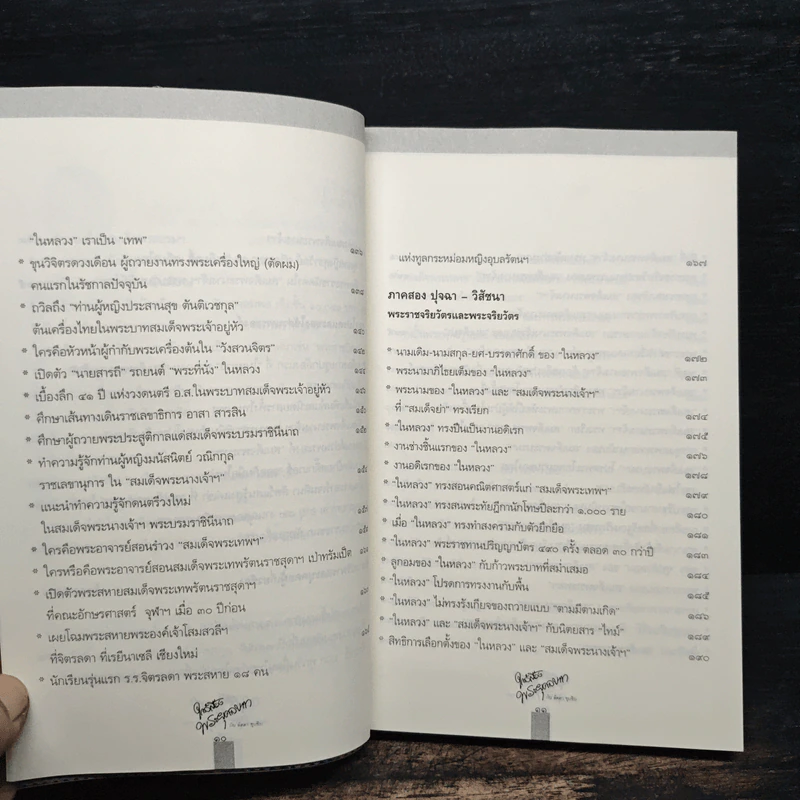 "ในหลวง" เราเป็น "เทพ" ๑๓๖
* ขุนวิจิตรดวงเดือน ผู้ถวายงานทรงพระเครื่องใหญ่ (ตัดผม)
คนแรกในรัชกาลปัจจุบัน ๑๓๘
* ถวิลถึง "ท่านผู้หญิงประสานสุข ตันติเวชกุล"
ต้นเครื่องไทยในพระบาทสมเด็จพระเจ้าอยู่หัว ๑๔๐
* ใครคือหัวหน้าผู้กำกับพระเครื่องต้นใน "วังสวนจิตร" ๑๔๒
* เปิดตัว "นายสารถี" รถยนต์ "พระที่นั่ง" ในหลวง ๑๔๔
* เบื้องลึก ๔๑ ปี แห่งวงดนตรี อ.ส.ในพระบาทสมเด็จพระเจ้าอยู่หัว
* ศึกษาเส้นทางเดินราชเลขาธิการ อาสา สารสิน
* ศึกษาผู้ถวายพระประสูติกาลแด่สมเด็จพระบรมราชินีนาถ
* ทำความรู้จักท่านผู้หญิงมนัสนิตย์ วณิกกุล
ราชเลขานุการ ใน "สมเด็จพระนางเจ้าฯ"
* แนะนำทำความรู้จักดนตรีวงใหม่
ในสมเด็จพระนางเจ้าฯ พระบรมราชินีนาถ
* ใครคือพระอาจารย์สอนรำวง "สมเด็จพระเทพฯ"
* ใครหรือคือพระอาจารย์สอนสมเด็จพระเทพรัตนราชสุดาฯ เป่าทรัมเป็ต
* เปิดตัวพระสหายสมเด็จพระเทพรัตนราชสุดาฯ
ที่คณะอักษรศาสตร์ จุฬาฯ เมื่อ ๓๐ ปีก่อน
* เผยโฉมพระสหายพระองค์เจ้าโสมสวลีฯ
ที่จิตรลดา ที่เรยีนาเชลี เชียงใหม่
* นักเรียนรุ่นแรก ร.ร.จิตรลดา พระสหาย ๑๘ คน
๑๐
แห่งทูลกระหม่อมหญิงอุบลรัตนฯ ๑๖๗
ภาคสอง ปุจฉา - วิสัชนา
พระราชจริยวัตรและพระจริยวัตร
* นามเดิม-นามสกุล-ยศ-บรรดาศักดิ์ ของ "ในหลวง" ๑๗๒
* พระนามาภิไธยเต็มของ "ในหลวง" ๑๗๓
* พระนามของ "ในหลวง" และ "สมเด็จพระนางเจ้าฯ"
ที่ "สมเด็จย่า" ทรงเรียก ๑๗๔
* "ในหลวง" ทรงปืนเป็นงานอดิเรก ๑๗๕
* งานช่างชิ้นแรกของ "ในหลวง" ๑๗๖
* งานอดิเรกของ "ในหลวง" ๑๗๘
* "ในหลวง" ทรงสอนคณิตศาสตร์แก่ "สมเด็จพระเทพฯ" ๑๗๙
* "ในหลวง" ทรงสนพระทัยฎีกานักโทษปีละกว่า ๑,๐๐๐ ราย ๑๘๐
* เมื่อ "ในหลวง" ทรงทำสงครามกับตัวยึกยือ ๑๘๑
* "ในหลวง" พระราชทานปริญญาบัตร ๔๙๐ ครั้ง ตลอด ๓๐ กว่าปี ๑๘๓
* ลูกอมของ "ในหลวง" กับก้าวพระบาทที่สม่ำเสมอ ๑๘๔
* "ในหลวง" โปรดการทรงงานกับพื้น ๑๘๕
* "ในหลวง" ไม่ทรงรังเกียจของถวายแบบ "ตามมีตามเกิด" ๑๘๖
* "ในหลวง" และ "สมเด็จพระนางเจ้าฯ" กับนิตยสาร "ไทม์" ๑๘๙
* สิทธิการเลือกตั้งของ "ในหลวง" และ "สมเด็จพระนางเจ้าฯ" ๑๙๐
๑๑